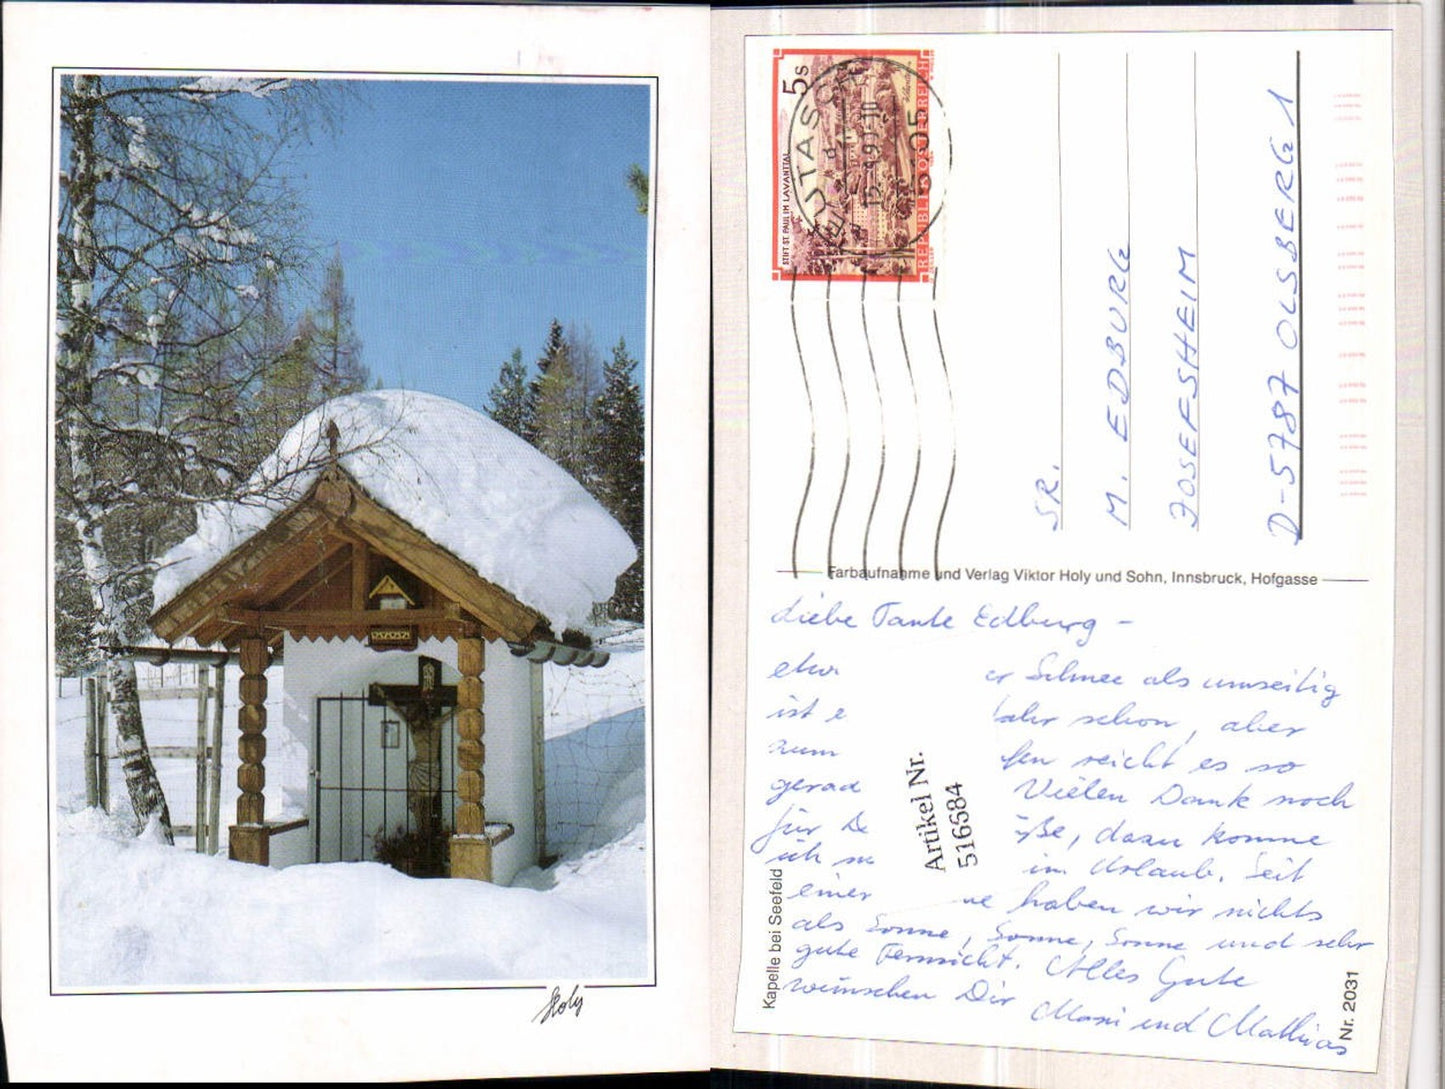 Holy
5 S
STIFT ST. PAUL IM LAVANTTAL
REPUBLIK ÖSTERREICH
SR.
M. EDBURG
JOSEFSHEIM
D-5787 OLSBERG 1
Farbaufnahme und Verlag Viktor Holy und Sohn, Innsbruck, Hofgasse
Liebe Tante Edburg -
er Schnee als umseitig
ist schon, aber
zum reicht es so
gerad Vielen Dank noch
für De dazu komme
ich im Urlaub. Seit
einer haben wir nichts
als Sonne, Sonne, Sonne und sehr
gute Fernsicht. Alles Gute
wünschen Dir Moni und Mathias
Artikel Nr.
516684
Kapelle bei Seefeld
Nr. 2031